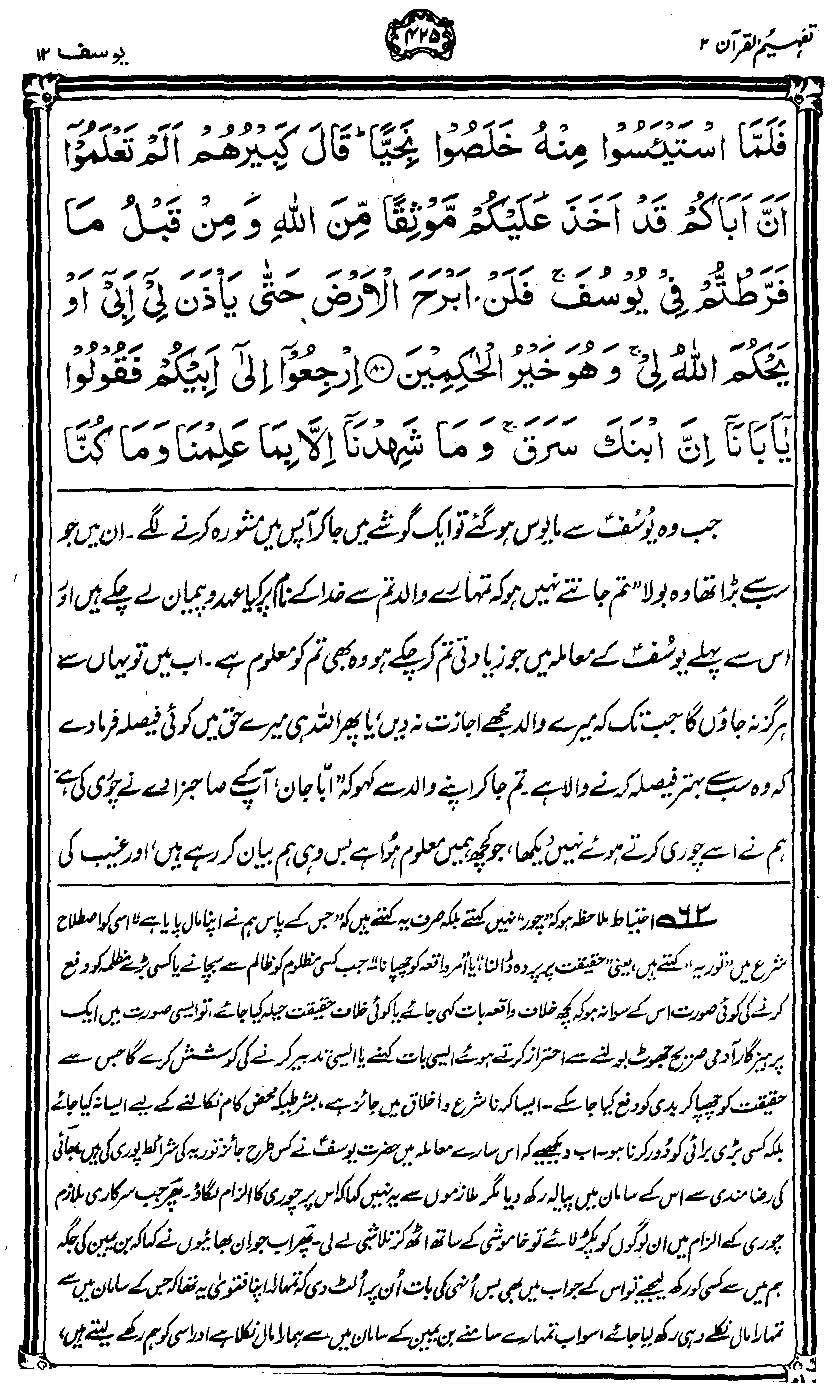 تفہیم القرآن ۲
۴۲۵
یوسف ۱۲
فَلَمَّا اسْتَيْئَسُوْا مِنْهُ خَلَصُوْا نَجِيًّا ؕ قَالَ كَبِيْرُهُمْ اَلَمْ تَعْلَمُوْٓا
اَنَّ اَبَاكُمْ قَدْ اَخَذَ عَلَيْكُمْ مَّوْثِقًا مِّنَ اللّٰهِ وَ مِنْ قَبْلُ مَا
فَرَّطْتُّمْ فِيْ يُوْسُفَ ۚ فَلَنْ اَبْرَحَ الْاَرْضَ حَتّٰى يَاْذَنَ لِيْٓ اَبِيْٓ اَوْ
يَحْكُمَ اللّٰهُ لِيْ ۚ وَ هُوَ خَيْرُ الْحٰكِمِيْنَ ۸۰ اِرْجِعُوْٓا اِلٰٓى اَبِيْكُمْ فَقُوْلُوْا
يٰٓاَبَانَآ اِنَّ ابْنَكَ سَرَقَ ۚ وَ مَا شَهِدْنَآ اِلَّا بِمَا عَلِمْنَا وَ مَا كُنَّا
جب وہ یوسفؑ سے مایوس ہو گئے تو ایک گوشے میں جا کر آپس میں مشورہ کرنے لگے۔ ان میں جو
سب سے بڑا تھا وہ بولا ”تم جانتے نہیں ہو کہ تمہارے والد تم سے خدا کے نام پر کیا عہد و پیمان لے چکے ہیں اور
اس سے پہلے یوسفؑ کے معاملہ میں جو زیادتی تم کر چکے ہو وہ بھی تم کو معلوم ہے۔ اب میں تو یہاں سے
ہرگز نہ جاؤں گا جب تک کہ میرے والد مجھے اجازت نہ دیں، یا پھر اللہ ہی میرے حق میں کوئی فیصلہ فرما دے
کہ وہ سب سے بہتر فیصلہ کرنے والا ہے۔ تم جا کر اپنے والد سے کہو کہ ”ابا جان، آپ کے صاحبزادے نے چوری کی ہے
ہم نے اسے چوری کرتے ہوئے نہیں دیکھا، جو کچھ ہمیں معلوم ہوا ہے بس وہی ہم بیان کر رہے ہیں، اور غیب کی
۶۳ احتیاط ملاحظہ ہو کہ ”چور“ نہیں کہتے بلکہ صرف یہ کہتے ہیں کہ ”جس کے پاس ہم نے اپنا مال پایا ہے“۔ اسی کو اصطلاح
شرع میں ”توریہ“ کہتے ہیں، یعنی ”حقیقت پر پردہ ڈالنا“، یا ”امر واقعہ کو چھپانا“۔ جب کسی مظلوم کو ظالم سے بچانے یا کسی بڑے مظلمہ کو دفع
کرنے کی کوئی صورت اس کے سوا نہ ہو کہ کچھ خلاف واقعہ بات کہی جائے یا کوئی خلاف حقیقت حیلہ کیا جائے، تو ایسی صورت میں ایک
پرہیزگار آدمی صریح جھوٹ بولنے سے احتراز کرتے ہوئے ایسی بات کہنے یا ایسی تدبیر کرنے کی کوشش کرے گا جس سے
حقیقت کو چھپا کر بدی کو دفع کیا جا سکے۔ ایسا کرنا شرع و اخلاق میں جائز ہے، بشرطیکہ محض کام نکالنے کے لیے ایسا نہ کیا جائے
بلکہ کسی بڑی برائی کو دور کرنا ہو۔ اب دیکھیے کہ اس سارے معاملہ میں حضرت یوسفؑ نے کس طرح جائز توریہ کی شرائط پوری کی ہیں۔ بھائی
کی رضامندی سے اس کے سامان میں پیالہ رکھ دیا مگر ملازموں سے یہ نہیں کہا کہ اس پر چوری کا الزام لگاؤ۔ پھر جب سرکاری ملازم
چوری کے الزام میں ان لوگوں کو پکڑ لائے تو خاموشی کے ساتھ اٹھ کر تلاشی لے لی۔ پھر اب جو ان بھائیوں نے کہا کہ بن یمین کی جگہ
ہم میں سے کسی کو رکھ لیجیے تو اس کے جواب میں بھی بس انہی کی بات اُن پر اُلٹ دی کہ تمہارا اپنا فتویٰ یہ تھا کہ جس کے سامان میں سے
تمہارا مال نکلے وہی رکھ لیا جائے، سو اب تمہارے سامنے بن یمین کے سامان میں سے ہمارا مال نکلا ہے اور اسی کو ہم رکھے لیتے ہیں،